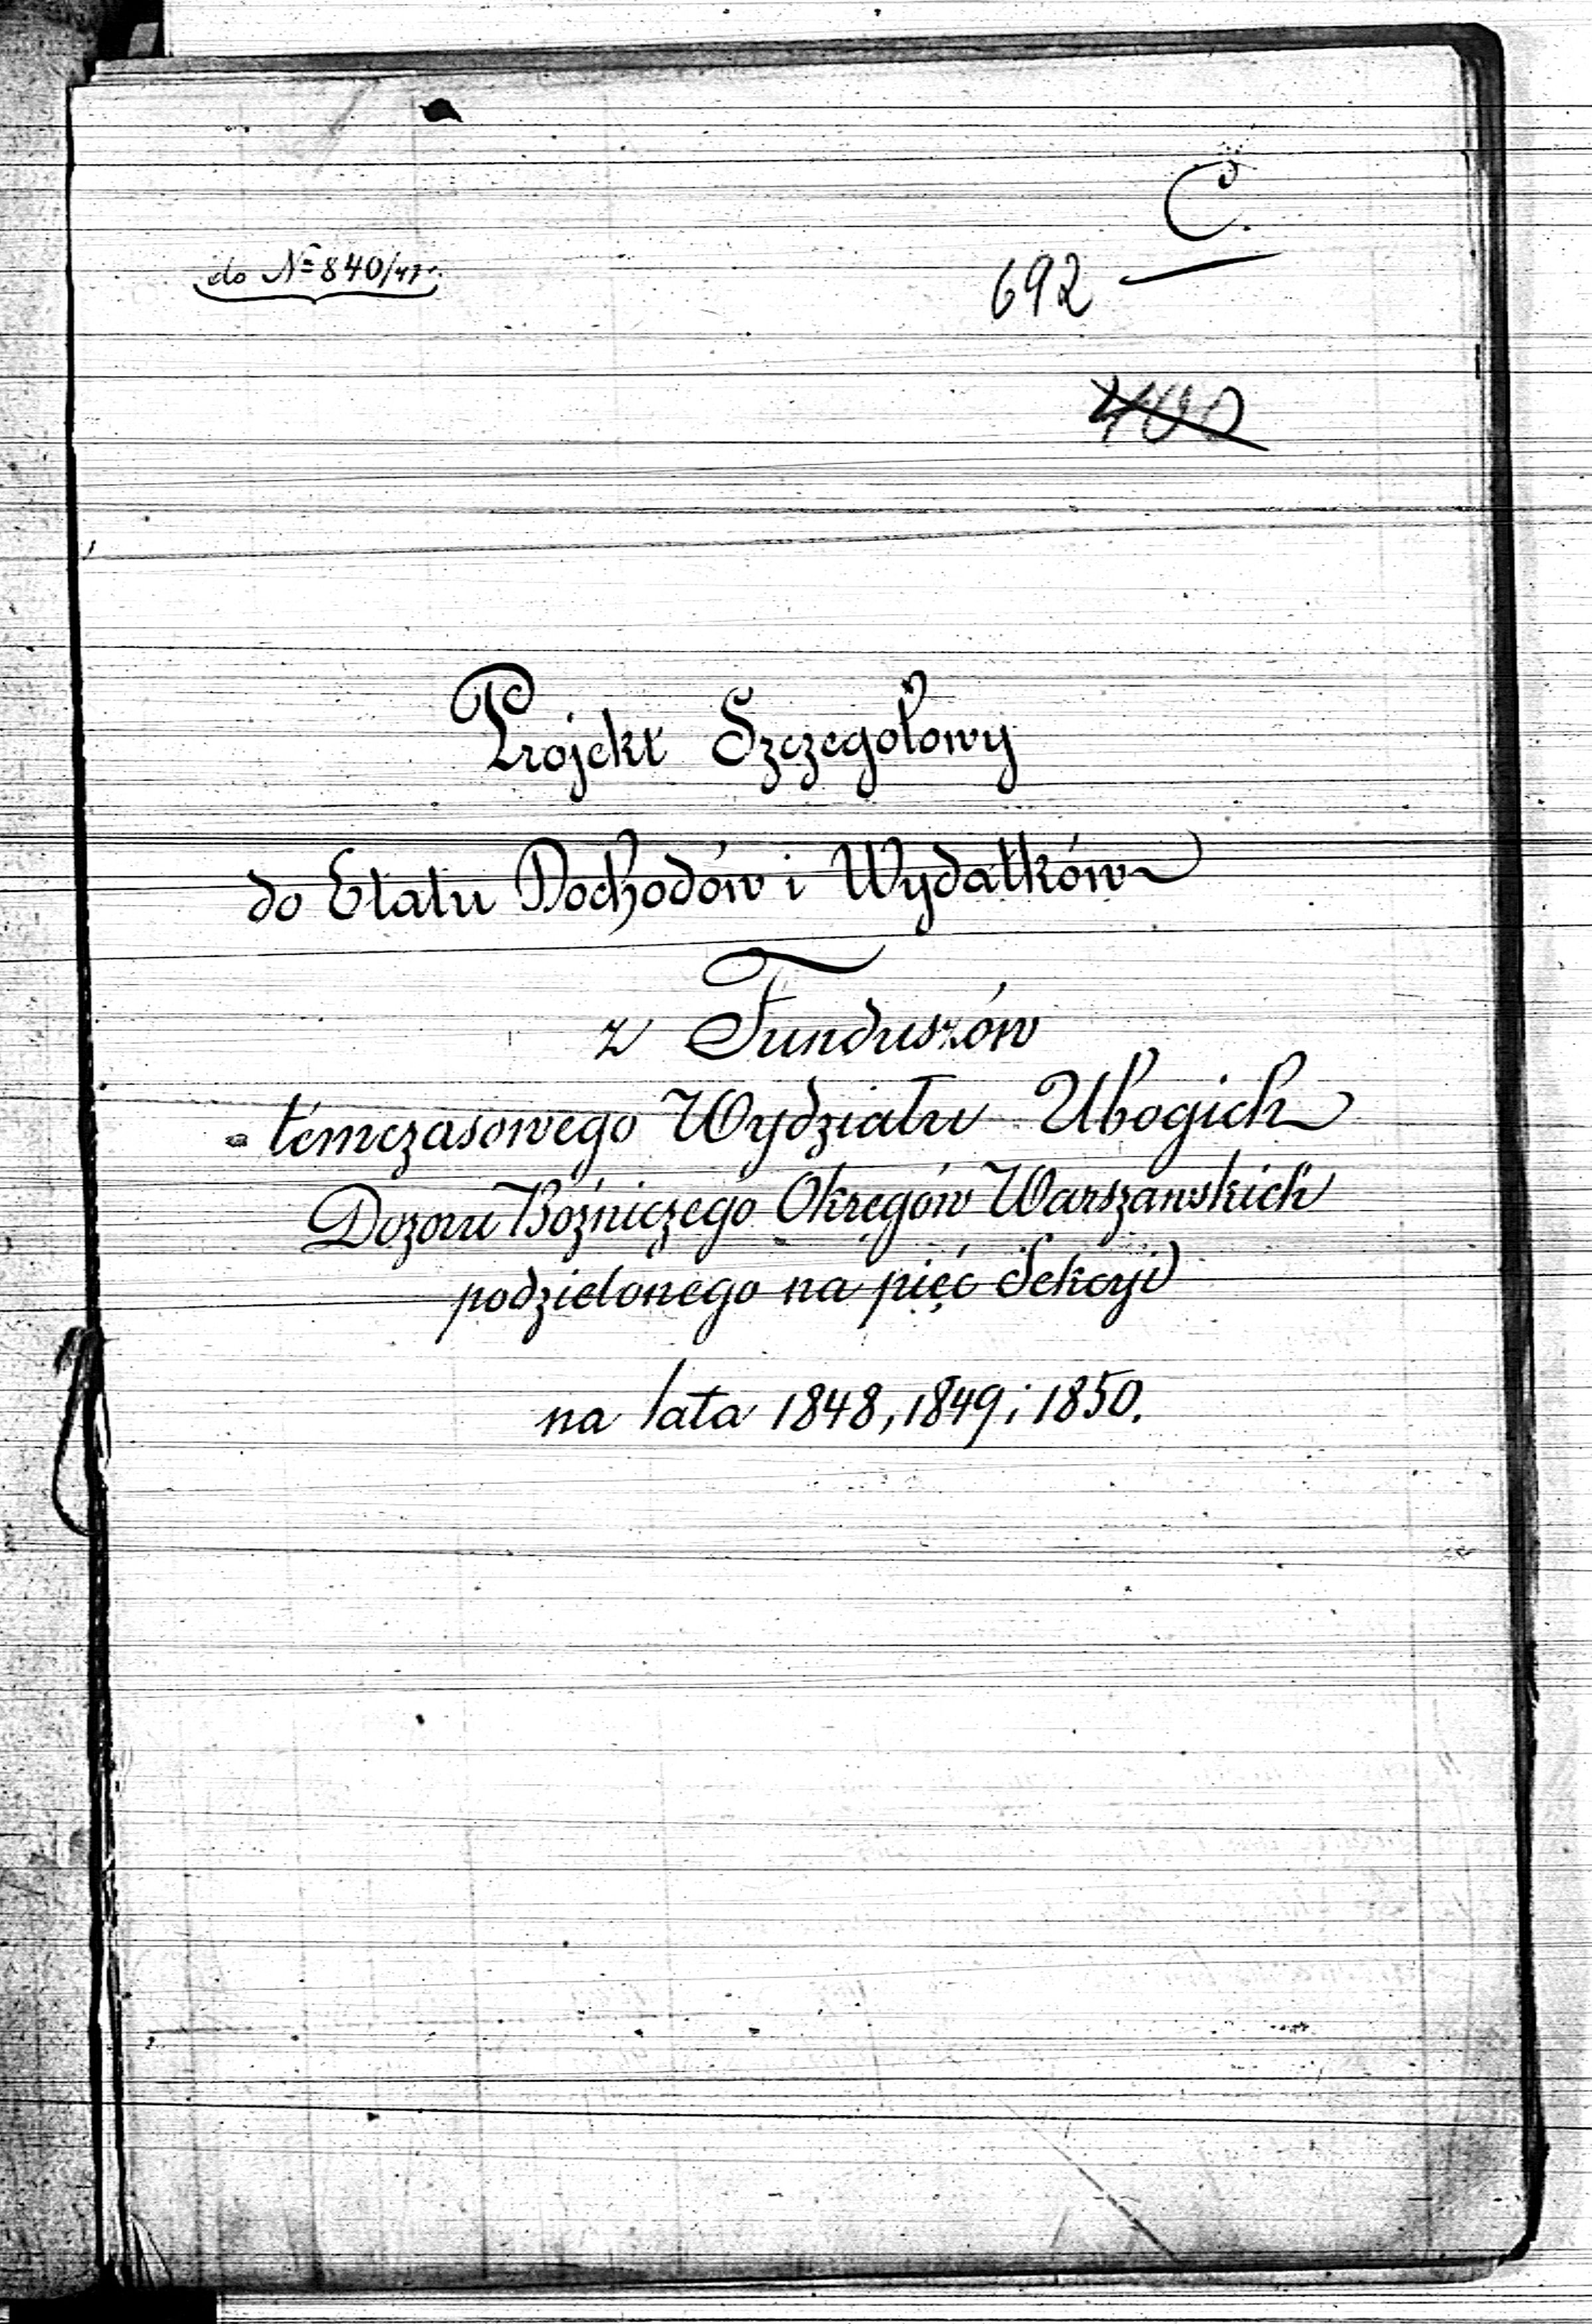 C.
do № 840/47 r.
692
400
Projekt Szczegołowy
do Etatu Dochodów i Wydatków
z Funduszów
témczasowego Wydziału Ubogich
Dozoru Bóżniczego Okręgów Warszawskich
podzielonego na pięć Sekcyi
na lata 1848, 1849 i 1850.